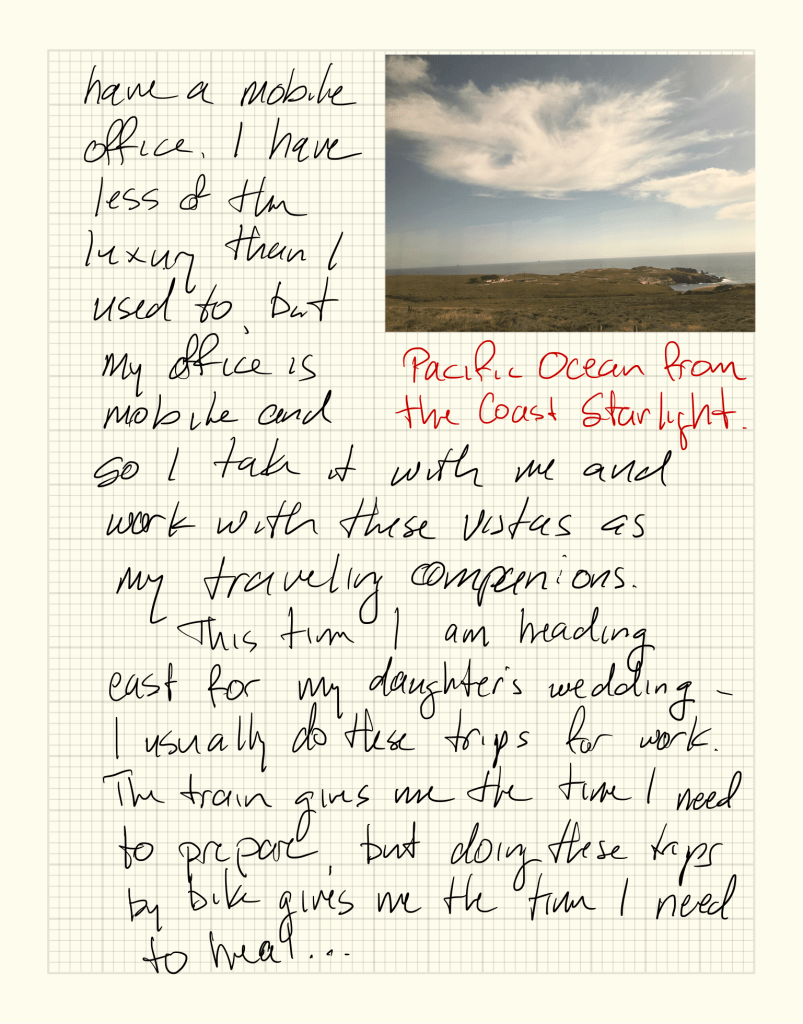 have a mobile
office. I have
less of the
luxury than I
used to, but
my office is
mobile and
Pacific Ocean from
the Coast Starlight.
so I take it with me and
work with these vistas as
my traveling companions.
This time I am heading
east for my daughter's wedding –
I usually do these trips for work.
The train gives me the time I need
to prepare, but doing these trips
by bike gives me the time I need
to heal...